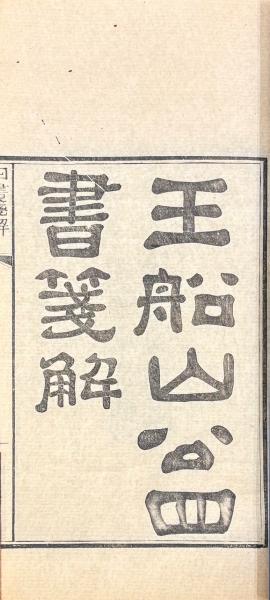 王船山公四
書箋解
四書箋解